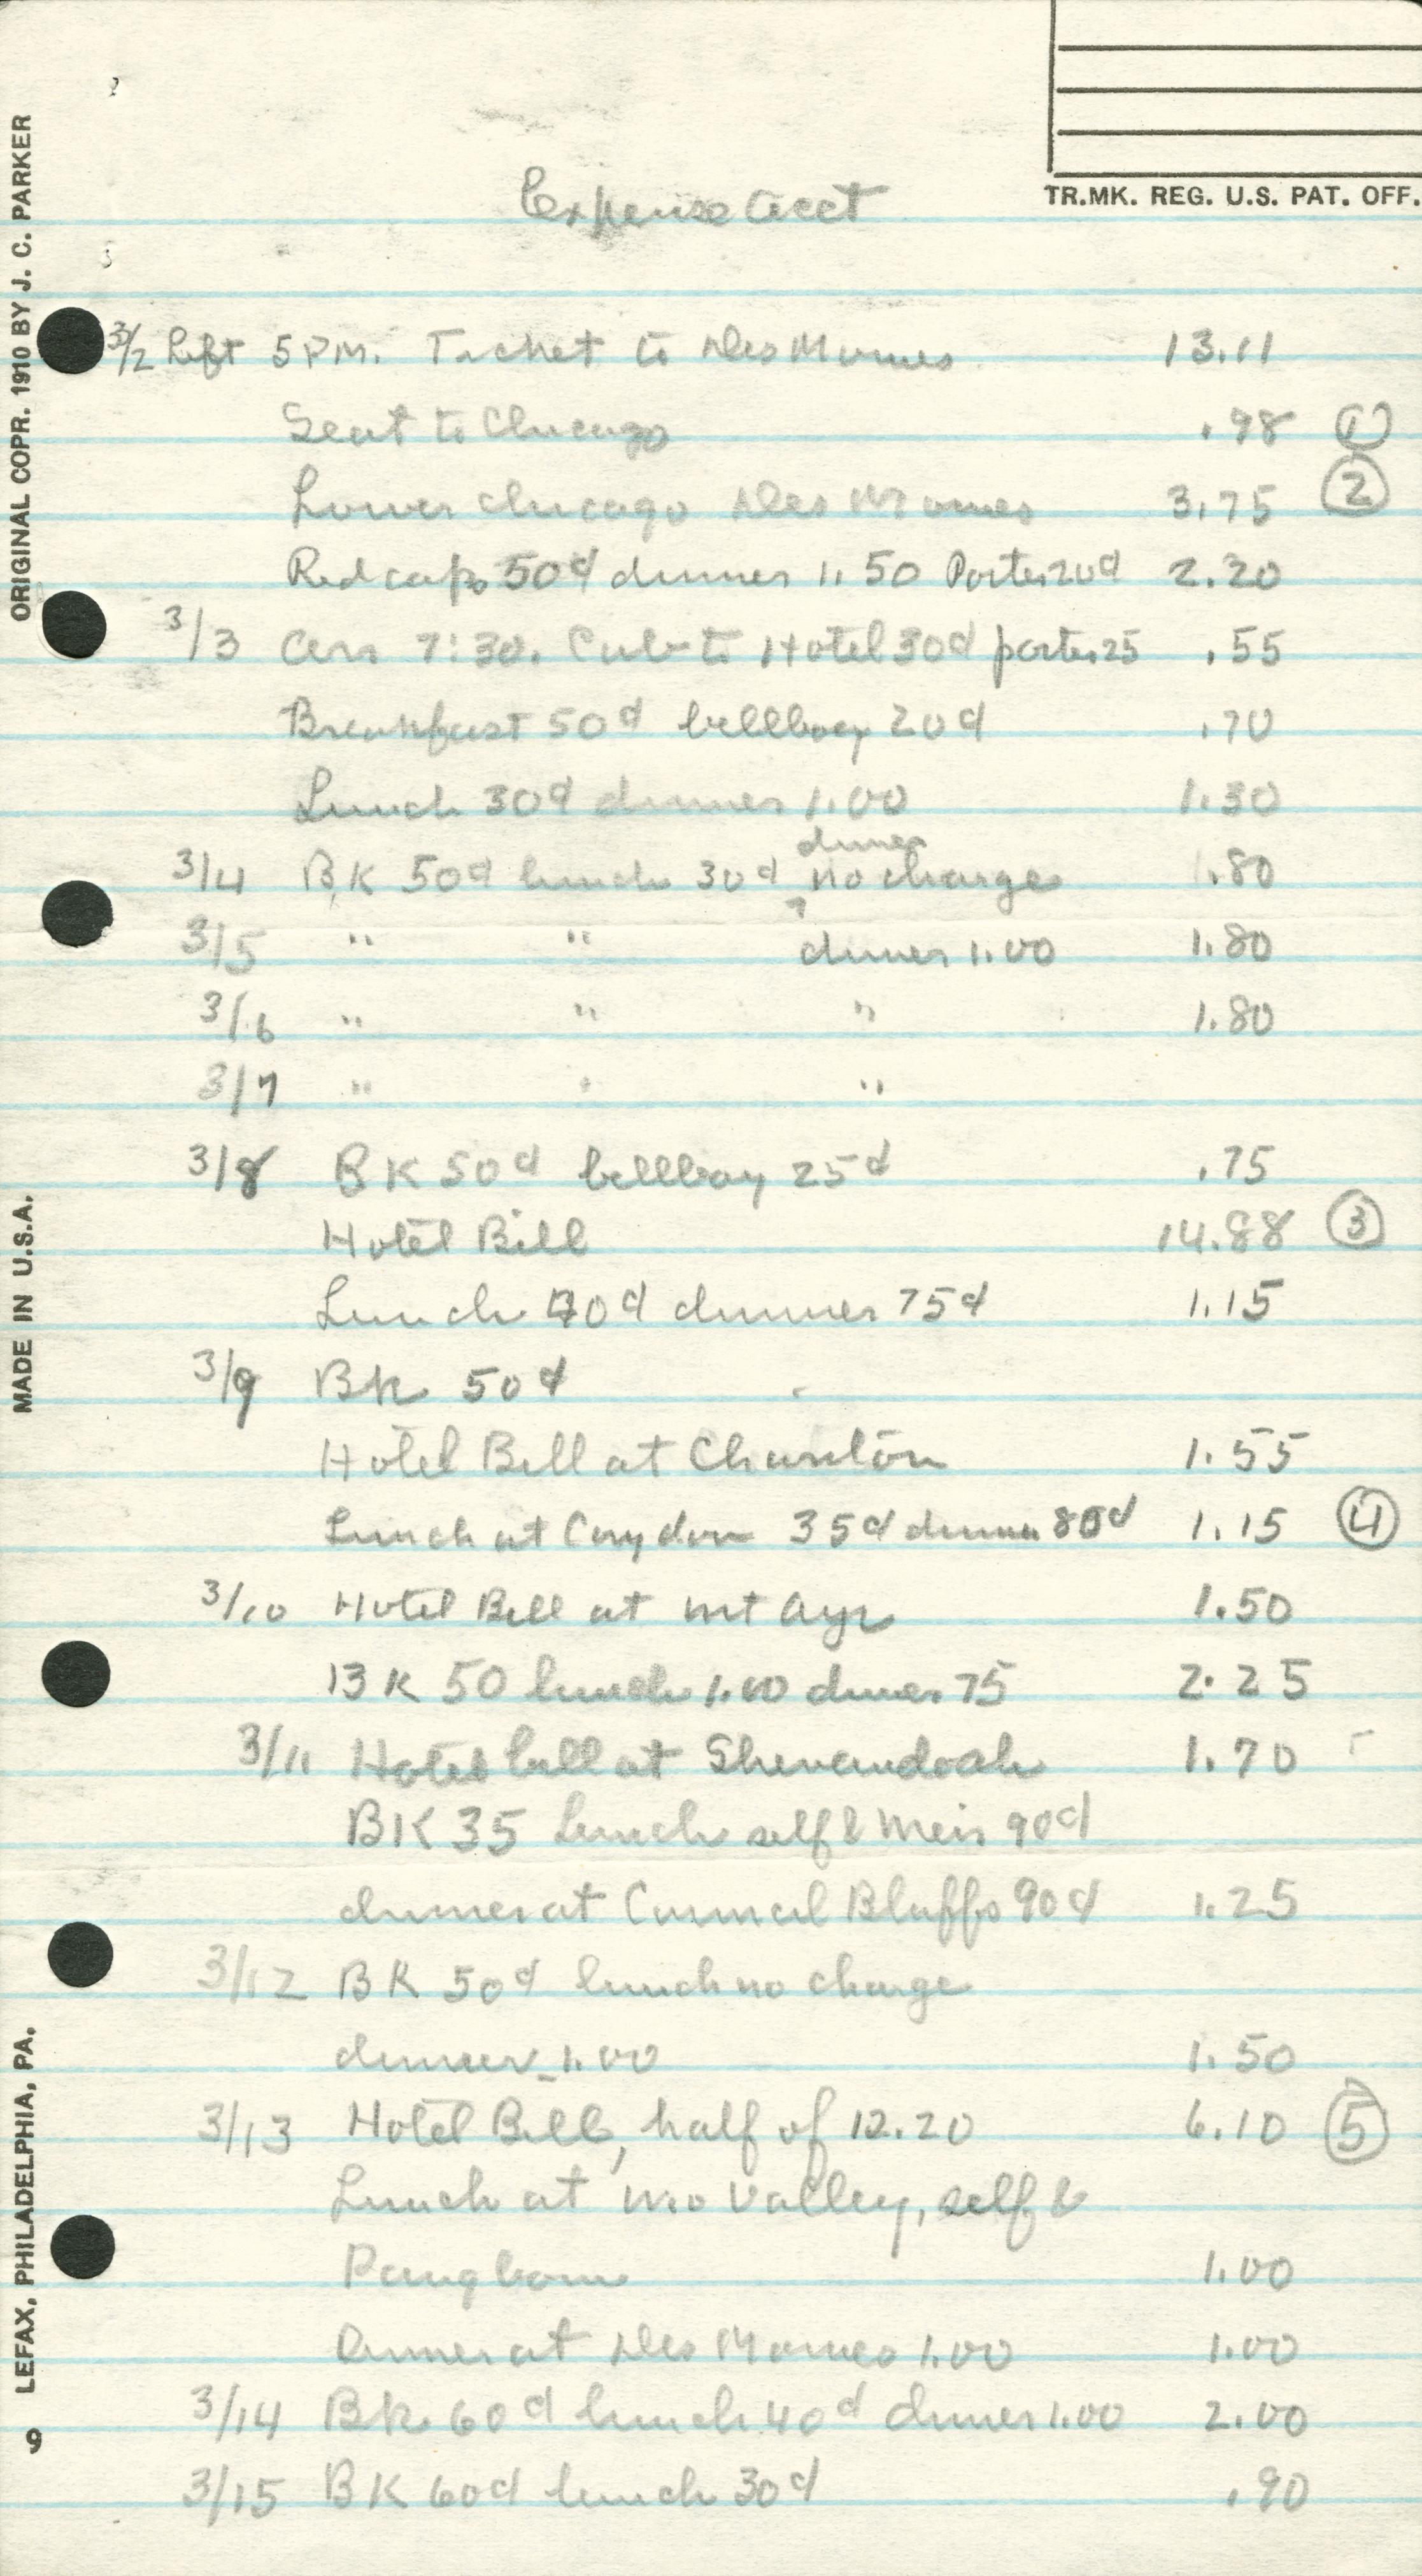 TR.MK. REG. U.S. PAT. OFF.
Expense Acct
3/2 Left 5 P.M. Ticket to Des Moines 13.11
Seat to Chicago .98 ①
Lower Chicago Des Moines 3.75 ②
Redcaps 50¢ dinner 1.50 Porter 20¢ 2.20
3/3 Arr 7:30. Cab to Hotel 30¢ porter 25 .55
Breakfast 50¢ bellboy 20¢ .70
Lunch 30¢ dinner 1.00 1.30
dinner
3/4 BK 50¢ lunch 30¢ no charge .80
3/5 " " dinner 1.00 1.80
3/6 " " " 1.80
3/7 " " "
3/8 BK 50¢ bellboy 25¢ .75
Hotel Bill 14.88 ③
Lunch 40¢ dinner 75¢ 1.15
3/9 Bk 50¢
Hotel Bill at Chariton 1.55
Lunch at Corydon 35¢ dinner 80¢ 1.15 ④
3/10 Hotel Bill at Mt Ayr 1.50
BK 50 lunch 1.00 dinner 75 2.25
3/11 Hotel bill at Shenandoah 1.70
BK 35 Lunch self & Meis 90¢
dinner at Council Bluffs 90¢ 1.25
3/12 BK 50¢ lunch no charge
dinner 1.00 1.50
3/13 Hotel Bill, half of 12.20 6.10 ⑤
Lunch at Mo Valley, self &
Pangborn 1.00
Dinner at Des Moines 1.00 1.00
3/14 Bk 60¢ lunch 40¢ dinner 1.00 2.00
3/15 BK 60¢ lunch 30¢ .90
6 LEFAX, PHILADELPHIA, PA. MADE IN U.S.A. ORIGINAL COPR. 1910 BY J. C. PARKER